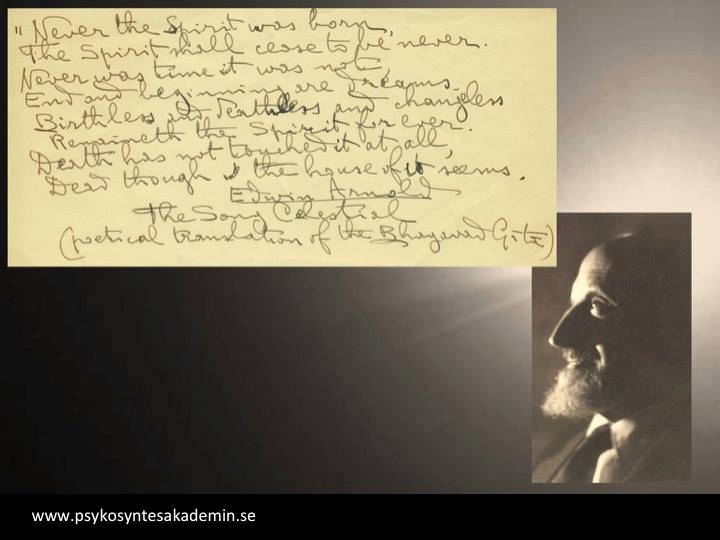 " Never the Spirit was born,
The Spirit shall cease to be never.
Never was time it was not,
End and beginning are dreams.
Birthless and Deathless and changless
Remaineth the Spirit for ever.
Death has not touched it at all,
Dead though the house of it seems.
Edwin Arnold
The Song Celestial
(poetical translation of the Bhagavad Gītā)
www.psykosyntesakademin.se